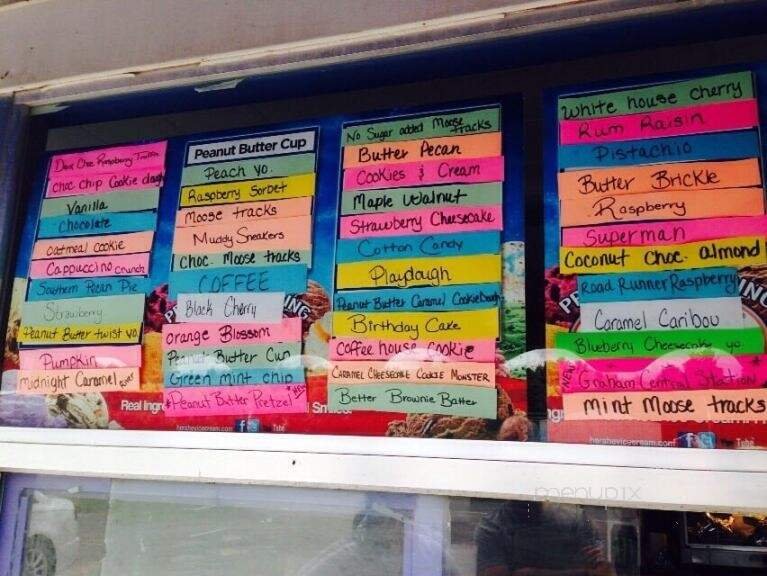 Dark Choc Raspberry Truffle
Choc Chip Cookie dough
Vanilla
Chocolate
Oatmeal Cookie
Cappuccino Crunch
Southern Pecan Pie
Strawberry
Peanut Butter twist yo.
Pumpkin
midnight Caramel River
Real Ingre
Peanut Butter Cup
Peach yo.
Raspberry Sorbet
Moose tracks
Muddy Sneakers
Choc. Moose tracks
COFFEE
Black Cherry
orange Blossom
Peanut Butter Cup
Green mint chip
Peanut Butter Pretzel
ING
hersheyicecream.com
f
Tube
No Sugar added Moose tracks
Butter Pecan
Cookies & Cream
Maple Walnut
Strawberry Cheesecake
Cotton Candy
Playdough
Peanut Butter Caramel Cookie Dough
Birthday Cake
Coffee house Cookie
CARAMEL CHEESECAKE COOKIE MONSTER
Better Brownie Batter
White house cherry
Rum Raisin
Pistachio
Butter Brickle
Raspberry
Superman
Coconut Choc. almond
Road Runner Raspberry
Caramel Caribou
Blueberry Cheesecake yo.
NEW Graham Central Station
Mint Moose tracks
hersheyicecream.com
f
Tube
menupix